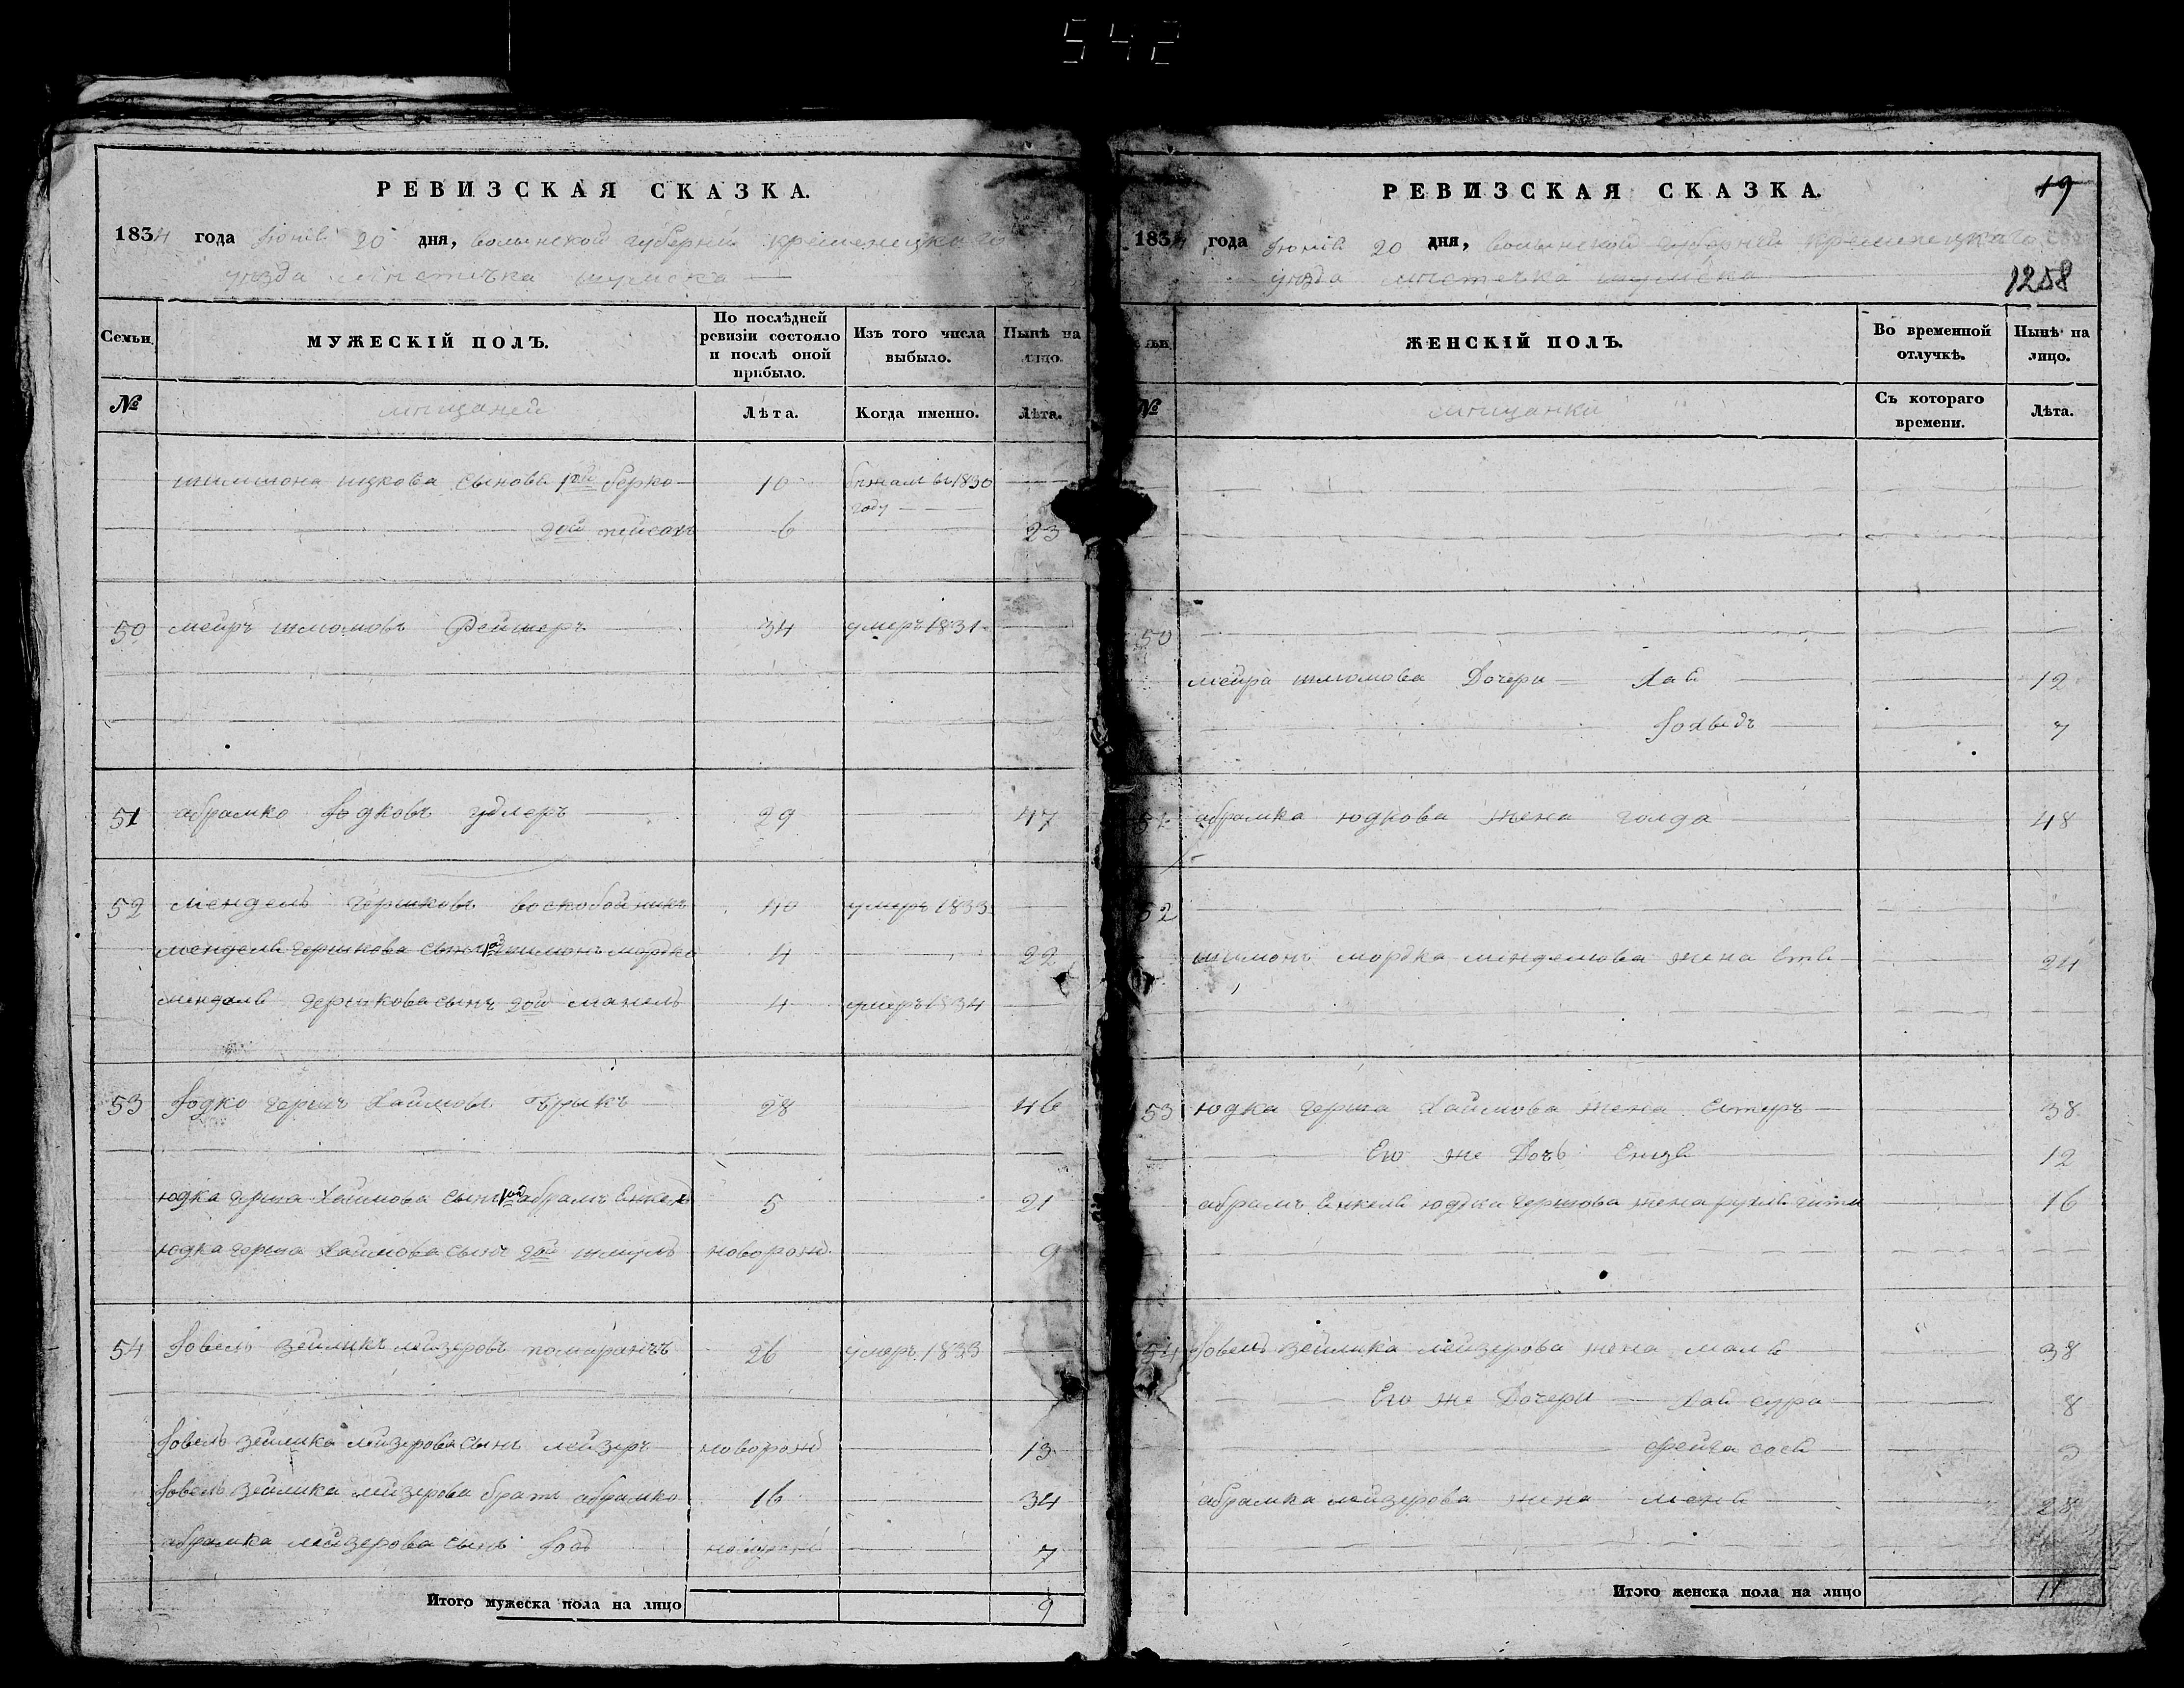 542
РЕВИЗСКАЯ СКАЗКА.
1834 года Іюнія 20 дня, волынской губерніи кременецкаго
уезда местечка шумска
Семьи.
МУЖЕСКІЙ ПОЛЪ.
По послѣдней ревизіи состояло и послѣ оной прибыло.
Изъ того числа выбыло.
Нынѣ на лицо.
№
мещаней
Лѣта.
Когда именно.
Лѣта.
шимшона ицкова сынове 1ой берко 10 бежал въ 1830
году
2ой пейсахъ 6 23
50 меиръ шмомовъ 34 умеръ 1831
51 абрамко Юдковъ удлеръ 29 47
52 мендель гершковъ воскобойникъ 40 умеръ 1833
менделя гершкова сынъ 1ой шимонъ мордко 4 22
менделя гершкова сынъ 2ой манель 4 умеръ 1834
53 Юдко гершъ Хаимовъ 28 46
юдка герша Хаимова сынъ 1ой абрамъ Янкель 5 21
юдка герша Хаимова сынъ 2ой шмуль новорожд. 9
54 Іовель зейликъ лейзеровъ помаранчъ 26 умеръ 1833
Іовель зейлика лейзерова сынъ лейзеръ новорожд 13
Іовель зейлика лейзерова братъ абрамко 16 34
абрамка лейзерова сынъ 7
Итого мужеска пола на лицо 9
РЕВИЗСКАЯ СКАЗКА.
19
1834 года Іюнія 20 дня, волынской губерніи кременецкаго
уезда местечка шумска
1258
№
ЖЕНСКІЙ ПОЛЪ.
Во временной отлучкѣ.
Нынѣ на лицо.
мещанки
Съ котораго времени.
Лѣта.
50
меира шлюмова Дочери Хая 12
Іохведъ 7
51 абрамка юдкова жена голда 48
52
шимонъ мордка менделюва жена 24
53 юдка герша Хаимова жена Естеръ 38
Его же Дочь 12
абрамъ Янкеля юдки гершова жена рухля гитля 16
54 Іовель зейлика лейзерова жена маля 38
Его же Дочери Хая сура 8
фейга сося
абрамка лейзерова жена 28
Итого женска пола на лицо 11